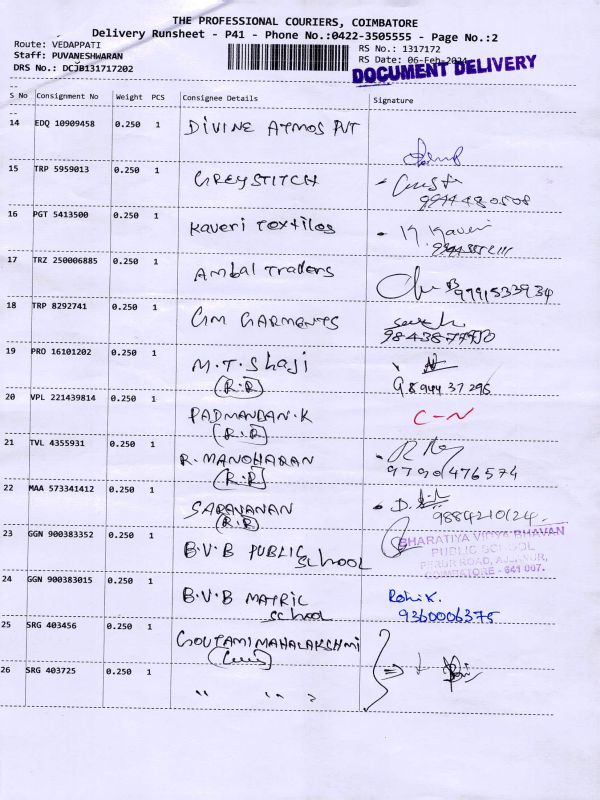 THE PROFESSIONAL COURIERS, COIMBATORE
Delivery Runsheet - P41 - Phone No.:0422-3505555 - Page No.:2
Route: VEDAPPATI RS No.: 1317172
Staff: PUVANESHWARAN RS Date: 06-Feb-2024
DRS No.: DCJB131717202
DOCUMENT DELIVERY
S No Consignment No Weight PCS Consignee Details Signature
14 EDQ 10909458 0.250 1 DIVINE ATMOS PVT
15 TRP 5959013 0.250 1 GREYSTITCH
9944480508
16 PGT 5413500 0.250 1 Kaveri Textiles K. Kaveri
17 TRZ 250006885 0.250 1 Ambal Traders
9791533934
18 TRP 8292741 0.250 1 GM GARMENTS
19 PRO 16101202 0.250 1 M.T.Shaji
(R.R) 9894437296
20 VPL 221439814 0.250 1 PADMANBAN.K C-N
(R.R)
21 TVL 4355931 0.250 1 R. MANOHARAN
(R.R) 9790476574
22 MAA 573341412 0.250 1 SARAVANAN
(R.R) 9884210124
23 GGN 900383352 0.250 1 B.V.B PUBLIC School
BHARATIYA VIDYA BHAVAN
PUBLIC SCHOOL
PERUR ROAD, AJJANUR,
COIMBATORE - 641 007.
24 GGN 900383015 0.250 1 B.V.B MATRIC School
Rohi K.
9360006375
25 SRG 403456 0.250 1 GOUTAMI MAHALAKSHMI
26 SRG 403725 0.250 1 " " "